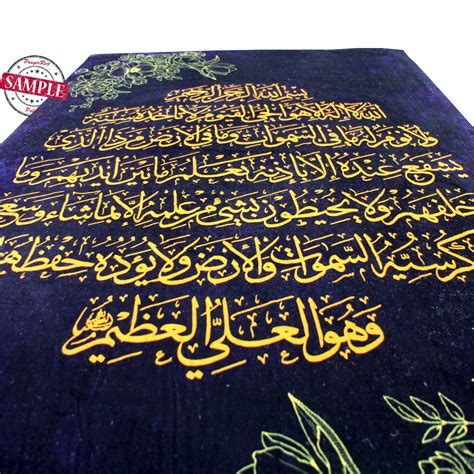 PrayerRug
SAMPLE
بسم الله الرحمن الرحيم
الله لا اله الا هو الحي القيوم لا تأخذه سنة
ولا نوم له ما في السموات وما في الارض من ذا الذي
يشفع عنده الا باذنه يعلم ما بين ايديهم وما
خلفهم ولا يحيطون بشئ من علمه الا بما شاء وسع
كرسيه السموات والارض ولا يؤده
وهو العلي العظيم